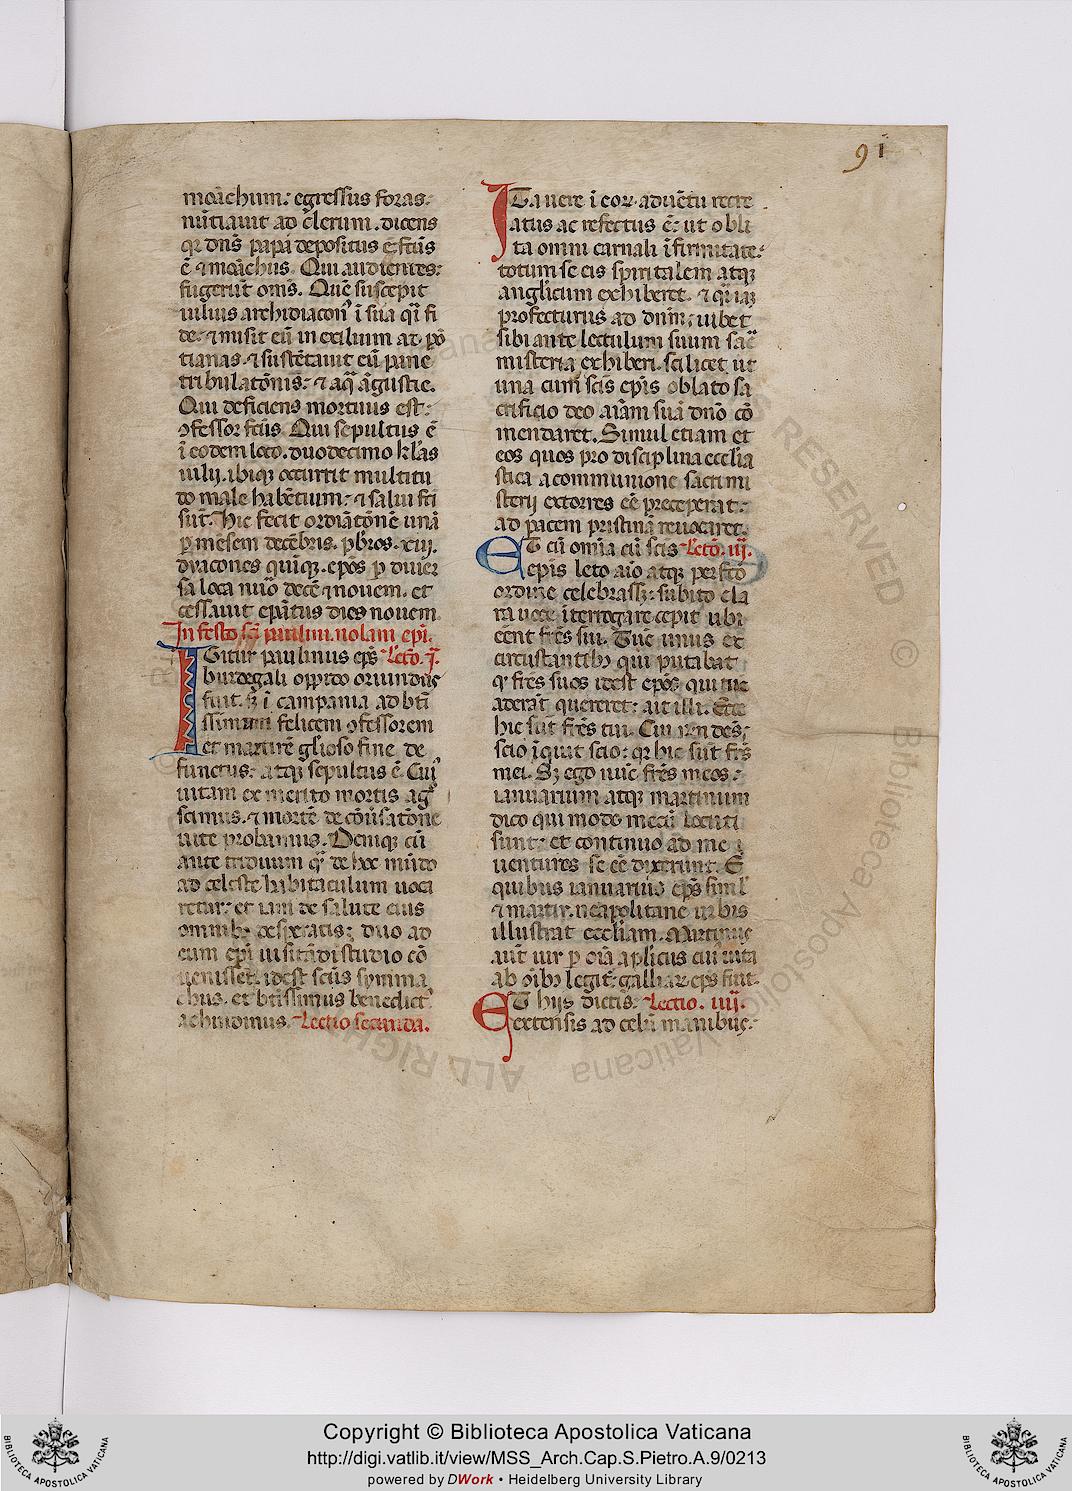 91
moãchum: egressus foras.
nũtiauit ad clerum. dicens
qr dns̃ papa depositus ẽ. fcũs
ẽ ⁊ moãchus. Qui audientes:
fugerũt om̃s. Quẽ suscepit
iulius archidiacon' ĩ sua qĩ fi
de: ⁊ misit eũ in exilium ad põ
tianas. ⁊ sustẽtauit eũ pane
tribulatõnis: ⁊ aq̃ ãgustie.
Qui deficiens mortuus est:
ꝯfessor fcũs. Qui sepultus ẽ
ĩ eodem loco. duodecimo kl'as
iulij. ibiqꝫ occurrit multitu
do male habẽtium: ⁊ salui fc̃i
sũt. Hic fecit ordiãtõnẽ unã
p mẽsem decẽbris. pb̃ros. xiij.
dyacones quiqꝫ. ep̃os p diuer
sa loca nũo decẽ ⁊ nouem. et
cessauit ep̃atus dies nouem.
In festo sc̃i paulini. nolani epĩ.
IGitur paulinus ep̃s Lec̃o. j̃.
burdegali oppido oriundus
fuit. sꝫ ĩ campania ad btĩ
ssimum felicem ꝯfessorem
et martirẽ gl̃ioso fine de
functus: atqꝫ sepultus ẽ. Cui'
uitam ex merito mortis ag̃
scimus. ⁊ mortẽ de cõuersatõne
uite probamus. Deniqꝫ cũ
ante triduum q̃ de hoc mũdo
ad celeste habitaculum uoca
retur: et iam de salute eius
omnibꝫ desperatis: duo ad
eum epĩ uisitãdi studio cõ
uenissẽt. idest scũs symma
chus. et btĩssimus benedict'
achindinus. Lectio secunda.
ITa uere ĩ eorꝫ aduẽtu recre
atus ac refectus ẽ: ut obli
ta omni carnali ĩfirmitate:
totum se eis spiritalem atqꝫ
anglicum exhiberet. ⁊ q̃ iaꝫ
profecturus ad dnũm: iubet
sibi ante lectulum suum sac̃
misteria exhiberi. scilicet ut
una cum scĩs epĩs oblato sa
crificio deo aiãm suã dnõ cõ
mendaret. Simul etiam et
eos quos pro disciplina eccl'ia
stica a communione sacri mi
sterij extorres eẽ preceperat:
ad pacem pristinã reuocaret.
ET cũ omĩa cũ scĩs Lec̃o. iij̃.
epĩs leto aiõ atqꝫ perfc̃o
ordine celebrassꝫ: subito cla
ra uoce ĩterrogare cepit ubi
eẽnt frẽs sui. Tũc unus ex
circũstantibꝫ qui putabat
q frẽs suos idest epõs qui tũc
aderãt quereret: ait illi. Ecce
hic sũt frẽs tui. Cui rñdens:
scio ĩquit scio: qr hic sũt frẽs
mei. Sꝫ ego nũc frẽs meos:
ianuarium atqꝫ martinum
dico qui modo mecũ locuti
sunt: et continuo ad me
uenturos se eẽ dixerunt. E
quibus ianuarius ep̃s simł
⁊ martir. neapolitane urbis
illustrat eccl'iam. Martinus
aũt uir p oĩa ap̃licus cui' uita
ab oĩbꝫ legit: galliarꝫ ep̃s fuit.
ET hijs dictis: Lectio. iiij̃.
extensis ad celũ manibus:
ALL RIGHTS RESERVED
© Biblioteca Apostolica Vaticana
Copyright © Biblioteca Apostolica Vaticana
http://digi.vatlib.it/view/MSS_Arch.Cap.S.Pietro.A.9/0213
powered by DWork • Heidelberg University Library
BIBLIOTECA APOSTOLICA VATICANA
BIBLIOTECA APOSTOLICA VATICANA